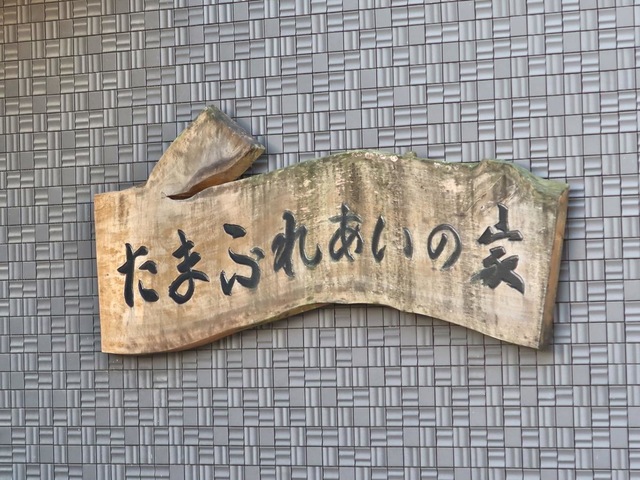 たまふれあいの家